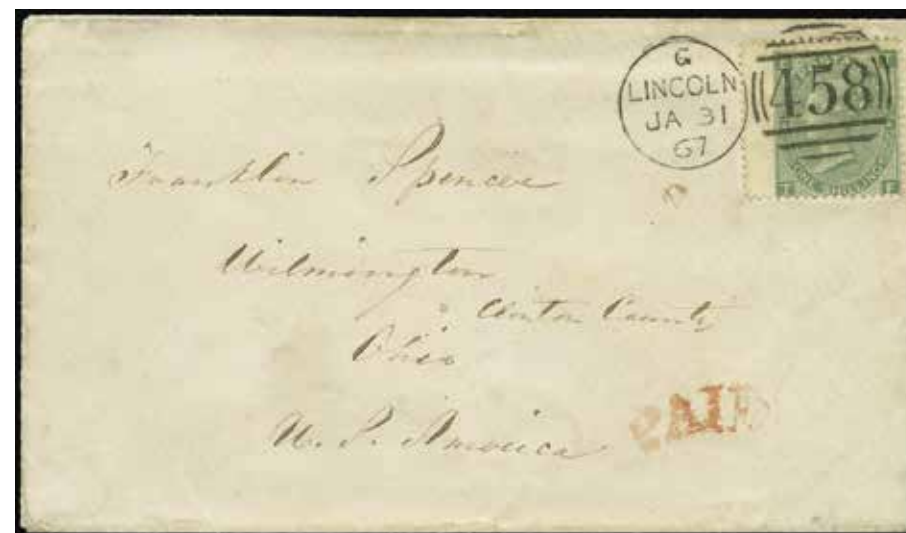 G
LINCOLN
JA 31
67
458
ONE SHILLING
I F
Franklin Spencer
Wilmington
Clinton County
Ohio
U. S. America
PAID